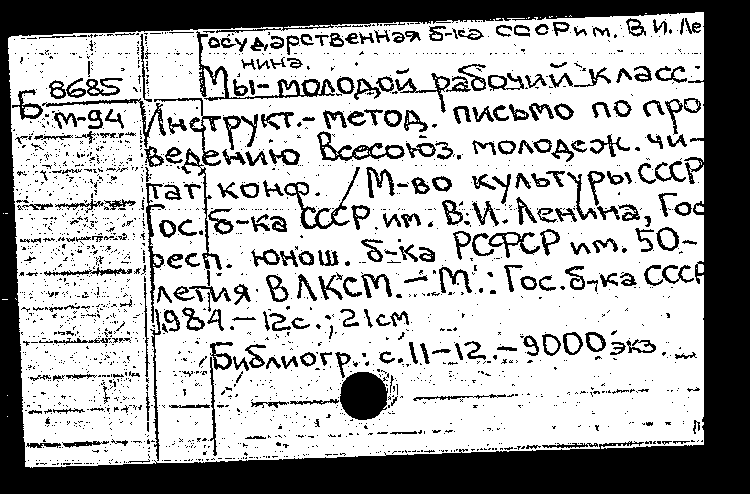 Государственная б-ка СССР им. В. И. Ле
нина.
Мы - молодой рабочий класс:
Б 8685
м-94
Инструкт.- метод. письмо по про
ведению Всесоюз. молодеж. чи-
тат. конф. / М-во культуры СССР
Гос. б-ка СССР им. В. И. Ленина, Гос
респ. юнош. б-ка РСФСР им. 50-
летия ВЛКСМ. - М.: Гос. б-ка СССР
1984. - 12 с. ; 21 см
Библиогр.: с. 11-12. - 9000 экз.